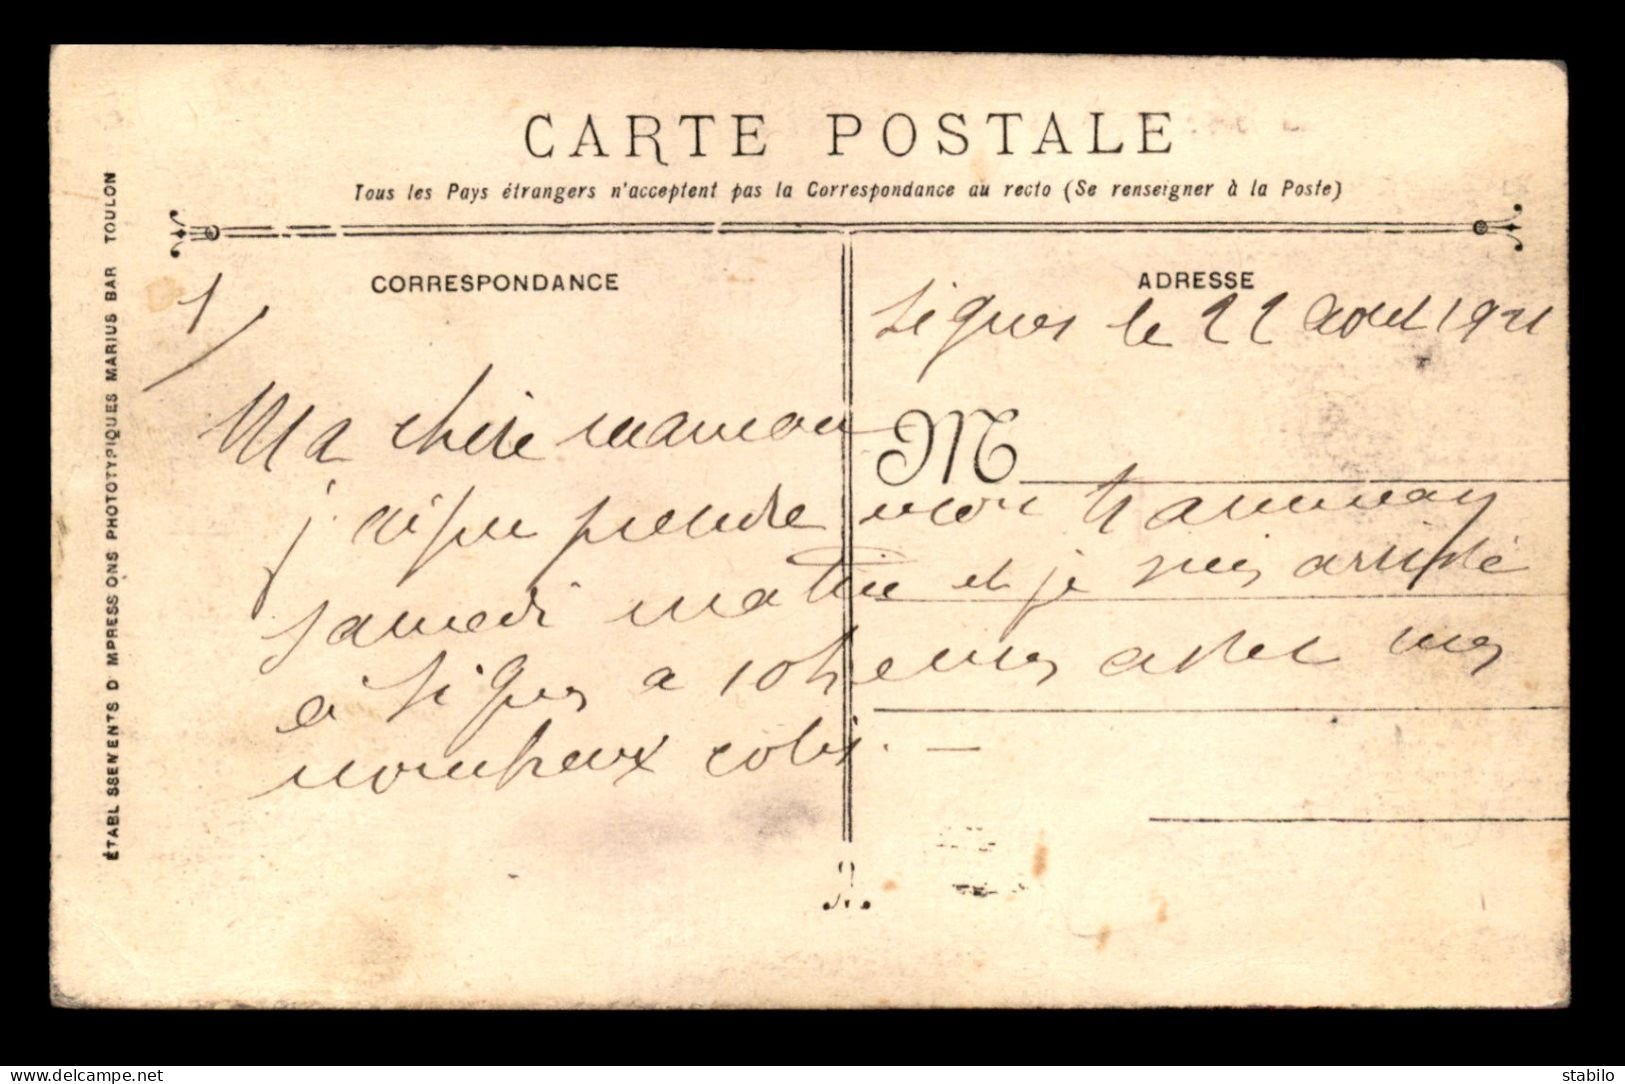 CARTE POSTALE
Tous les Pays étrangers n'acceptent pas la Correspondance au recto (Se renseigner à la Poste)
CORRESPONDANCE
ADRESSE
ÉTABL SSEMENTS D MPRESS ONS PHOTOTYPIQUES MARIUS BAR TOULON
1/
Signes le 22 août 1921
Ma chère maman
M
j'ai pu prendre mon tramway
samedi matin et je suis arrivé
à Signes a 10 heures avec mes
nombreux colis. —
stabilo